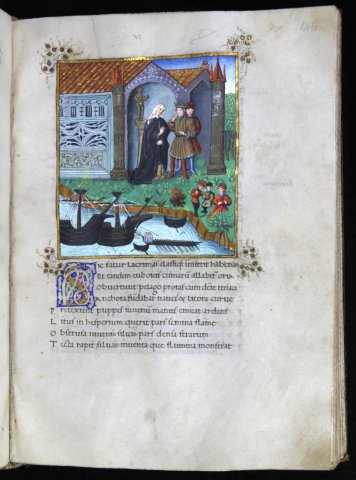 146
Sic fatur lacrimas classiq; imittit habenas
Et tandem euboicis cumarū allabit oris
Obvertunt pelago proras tum dēte tenaci
Anchora fūdabat naves & litora curve
Pretexunt puppes iuvenū manus emicat ardens
Litus in hesperium querit pars semina flāme
Obstrusa in venis silicis pars densa ferarum
Tecta rapit silvas inventa que flumina monstrat